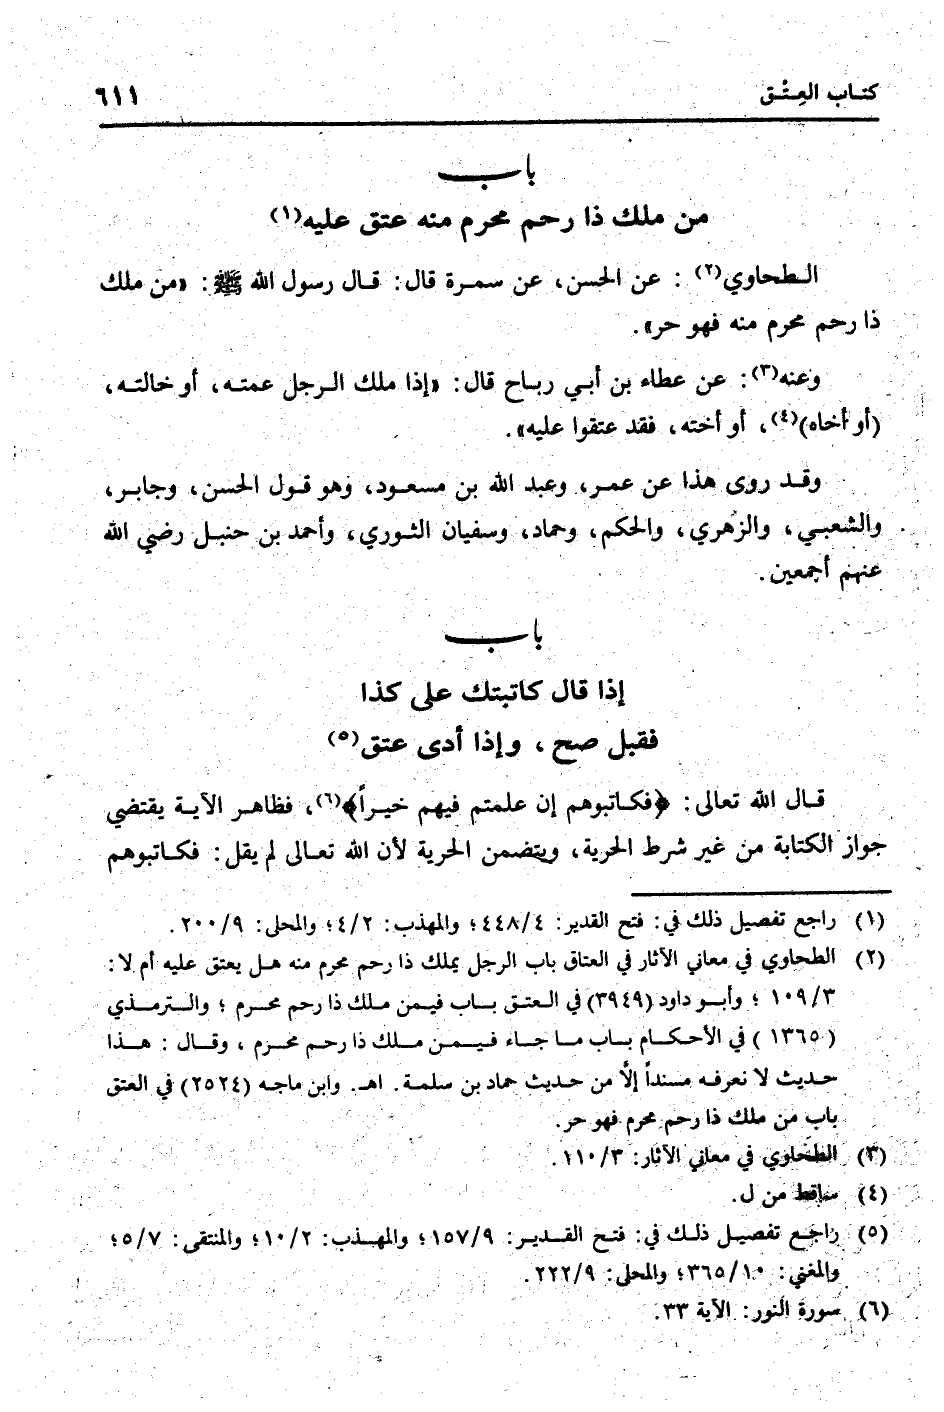 كتاب العِتْق
٦١١
باب
من ملك ذا رحم محرم منه عتق عليه(١)
الطحاوي(٢) : عن الحسن، عن سمرة قال: قال رسول الله ﷺ: «من ملك
ذا رحم محرم منه فهو حر».
وعنه(٣): عن عطاء بن أبي رباح قال: «إذا ملك الرجل عمته، أو خالته،
(أو أخاه)(٤)، أو أخته، فقد عتقوا عليه».
وقد روى هذا عن عمر، وعبد الله بن مسعود، وهو قول الحسن، وجابر،
والشعبي، والزهري، والحكم، وحماد، وسفيان الثوري، وأحمد بن حنبل رضي الله
عنهم أجمعين.
باب
إذا قال كاتبتك على كذا
فقبل صح، وإذا أدى عتق(٥)
قال الله تعالى: ﴿فكاتبوهم إن علمتم فيهم خيراً﴾(٦)، فظاهر الآية يقتضي
جواز الكتابة من غير شرط الحرية، ويتضمن الحرية لأن الله تعالى لم يقل: فكاتبوهم
(١) راجع تفصيل ذلك في: فتح القدير: ٤/٤٤٨؛ والمهذب: ٤/٢؛ والمحلى: ٢٠٠/٩.
(٢) الطحاوي في معاني الآثار في العتاق باب الرجل يملك ذا رحم محرم منه هل يعتق عليه أم لا:
١٠٩/٣ ؛ وأبو داود (٣٩٤٩) في العتق باب فيمن ملك ذا رحم محرم ؛ والترمذي
(١٣٦٥ ) في الأحكام باب ما جاء فيمن ملك ذا رحم محرم ، وقال : هذا
حديث لا نعرفه مسنداً إلَّا من حديث حماد بن سلمة. اهـ. وابن ماجه (٢٥٢٤) في العتق
باب من ملك ذا رحم محرم فهو حر.
(٣) الطحاوي في معاني الآثار: ١١٠/٣.
(٤) ساقط من ل.
(٥) راجع تفصيل ذلك في: فتح القدير: ١٥٧/٩؛ والمهذب: ١٠/٢؛ والمنتقى: ٥/٧؛
والمغني: ٣٦٥/١٠؛ والمحلى: ٢٢٢/٩.
(٦) سورة النور: الآية ٣٣.